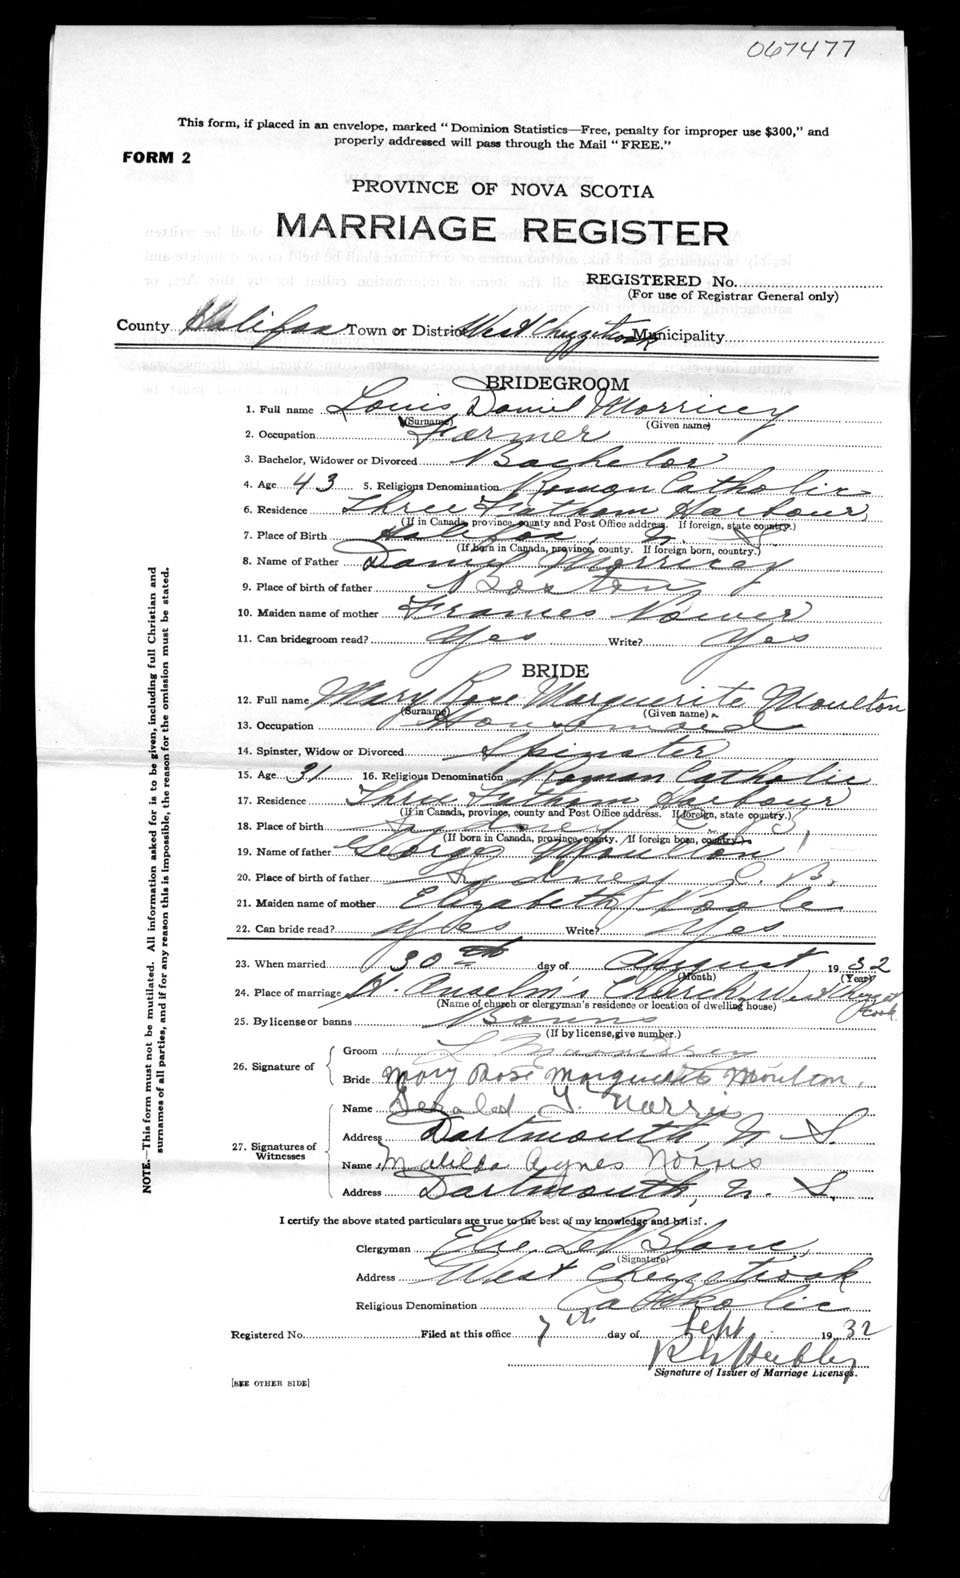 067477
This form, if placed in an envelope, marked "Dominion Statistics—Free, penalty for improper use $300," and
properly addressed will pass through the Mail "FREE."
FORM 2
PROVINCE OF NOVA SCOTIA
MARRIAGE REGISTER
REGISTERED No.
(For use of Registrar General only)
County Halifax Town or District West Chezzetcook Municipality
BRIDEGROOM
1. Full name Louis Daniel Morricey
(Surname) (Given name)
2. Occupation Farmer
3. Bachelor, Widower or Divorced Bachelor
4. Age 43 5. Religious Denomination Roman Catholic
6. Residence Three Fathom Harbour
(If in Canada, province, county and Post Office address. If foreign, state country.)
7. Place of Birth Halifax, N. S.
(If born in Canada, province, county. If foreign born, country.)
8. Name of Father Daniel Morricey
9. Place of birth of father Boston
10. Maiden name of mother Frances
11. Can bridegroom read? Yes Write? Yes
BRIDE
12. Full name Mary Rose Marguerite Moulton
(Surname) (Given name)
13. Occupation Housemaid
14. Spinster, Widow or Divorced Spinster
15. Age 31 16. Religious Denomination Roman Catholic
17. Residence Three Fathom Harbour
(If in Canada, province, county and Post Office address. If foreign, state country.)
18. Place of birth Sydney
(If born in Canada, province, county. If foreign born, country.)
19. Name of father George Moulton
20. Place of birth of father Sydney C. B.
21. Maiden name of mother Elizabeth
22. Can bride read? Yes Write? Yes
23. When married 30th day of August 1932
(Month) (Year)
24. Place of marriage St. Anselm's Church, West Chezzetcook
(Name of church or clergyman's residence or location of dwelling house)
25. By license or banns Banns
(If by license, give number.)
26. Signature of
Groom L
Bride Mary Rose Marguerite Moulton.
27. Signatures of Witnesses
Name Gerald Norris
Address Dartmouth, N. S.
Name Matilda Agnes Norris
Address Dartmouth, N. S.
I certify the above stated particulars are true to the best of my knowledge and belief.
Clergyman LeBlanc
(Signature)
Address West Chezzetcook
Religious Denomination Catholic
Registered No. Filed at this office 7th day of Sept 1932
Signature of Issuer of Marriage Licenses.
[SEE OTHER SIDE]
NOTE.—This form must not be mutilated. All information asked for is to be given, including full Christian and
surnames of all parties, and if for any reason this is impossible, the reason for the omission must be stated.